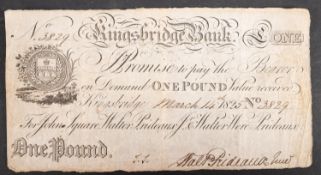 No. 3829 Kingsbridge Bank. £ONE
I Promise to pay the Bearer
on Demand ONE POUND Value received
Kingsbridge March 14 1825 No. 3829
For John Square Walter Prideaux Jr & Walter Were Prideaux
One Pound.
Walt Prideaux Junr